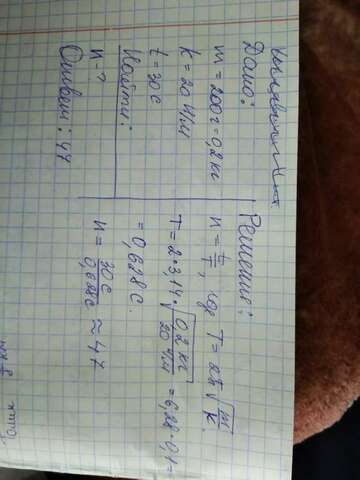 Дано:
m = 200г = 0,2 кг
k = 20 Н/м
t = 30 с
Найти:
n - ?
Ответ: 47
Решение:
n = t/T, где T = 2π√m/k.
T = 2·3,14·√0,2 кг/20 Н/м = 6,28·0,1 =
= 0,628 с.
n = 30 с/0,628 с ≈ 47